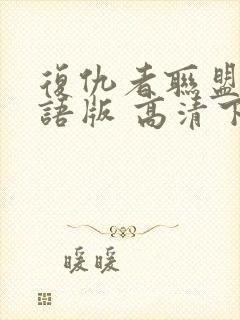 復仇者聯盟
語版 高清下
暖暖